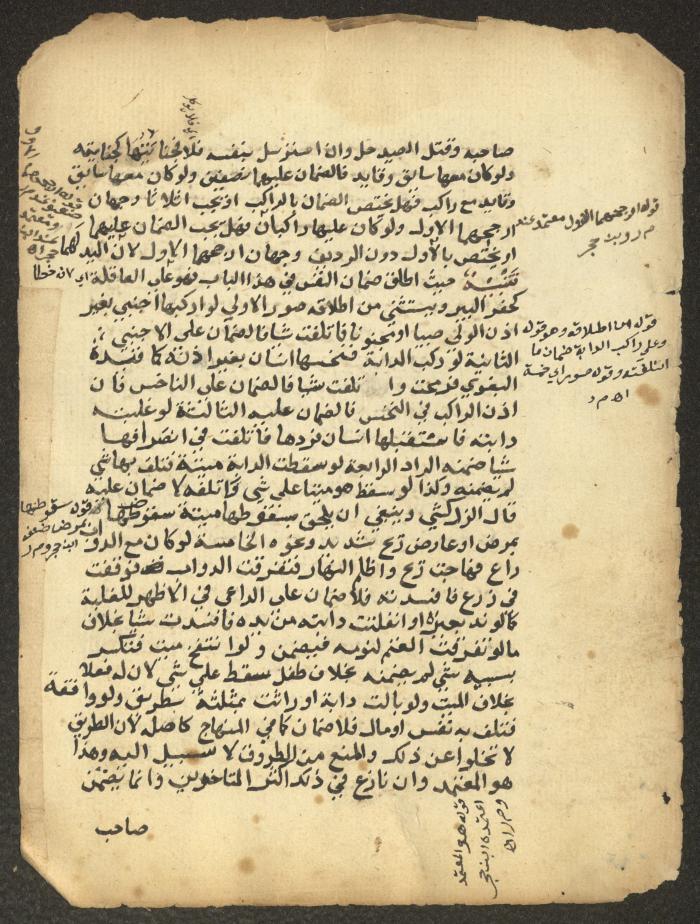 صاحبه وقتل الصيد حل وان استرسل بنفسه فلا
ولو كان معها سايق وقايد فالضمان عليهما نصفين ولو كان معها سايق
وقايد مع راكب فهل يختص الضمان بالراكب او يجب اثلاثا وجهان
ارجحهما الاول ولو كان عليها راكبان فهل يجب الضمان عليهما
او يختص بالاول دون الرديف وجهان ارجحهما الاول لان اليد لهما
تنبيه حيث اطلق ضمان النفس في هذا الباب فهو على العاقلة
كحفر البير ويستثني من اطلاقه صور الاولي لو اركبها اجنبي بغير
اذن الولي صبيا او مجنونا فاتلفت شيا فالضمان على الاجنبي
الثانية لو ركب الدابة فنخسها انسان بغير اذنه كما قيده
البغوي فرمحت واتلفت شيا فالضمان على الناخس فان
اذن الراكب في النخس فالضمان عليه الثالثة لو غلبته
دابته فاستقبلها انسان فردها فاتلفت في انصرافها
شيا ضمنه الراد الرابعة لو سقطت الدابة ميتة فتلف بها شي
لم يضمنه وكذا لو سقط هو ميتا على شي واتلفه لا ضمان عليه
قال الزركشي وينبغي ان يلحق بسقوطها ميتة سقوطها
بمرض او عارض ريح شديد ونحوه الخامسة لو كان مع الدواب
راع فهاجت ريح واظلم النهار فتفرقت الدواب فوقعت
في زرع فافسدته فلا ضمان على الراعي في الاظهر للغلبة
كما لو ند بعيره او انفلتت دابته من يده فافسدت شيا بخلاف
ما لو تفرقت الغنم لنومه فيضمن ولو انتفخ ميت فتكسر
بسببه شي لم يضمنه بخلاف طفل سقط على شي لان له فعلا
بخلاف الميت ولو بالت دابة او راثت بمثلثة بطريق ولو واقفة
فتلف به نفس او مال فلا ضمان كما في المنهاج كاصله لان الطريق
لا تخلوا عن ذلك والمنع من الطروق لا سبيل اليه وهذا
هو المعتمد وان نازع في ذلك اكثر المتاخرين وانما يضمن
صاحب
قوله ارجحهما الاول معتمد عند
م ر وبن حجر
قوله من اطلاقه وهو قوله
وعلى راكب الدابة ضمان ما
اتلفته وقوله صور اي خمسة
قوله سقوطها
بمرض ضعفه
قوله هو المعتمد
اعتمده ابن حجر